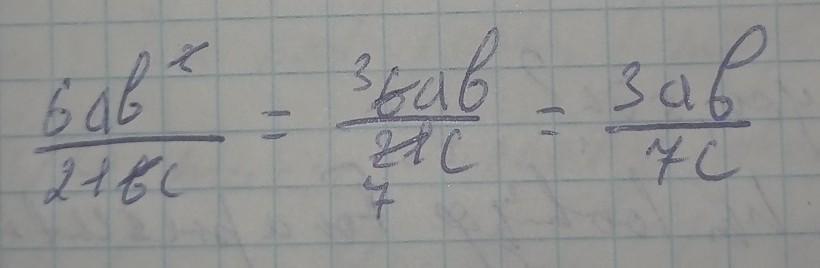 6ab² / 21bc = ³6ab / 21c ₇ = 3ab / 7c